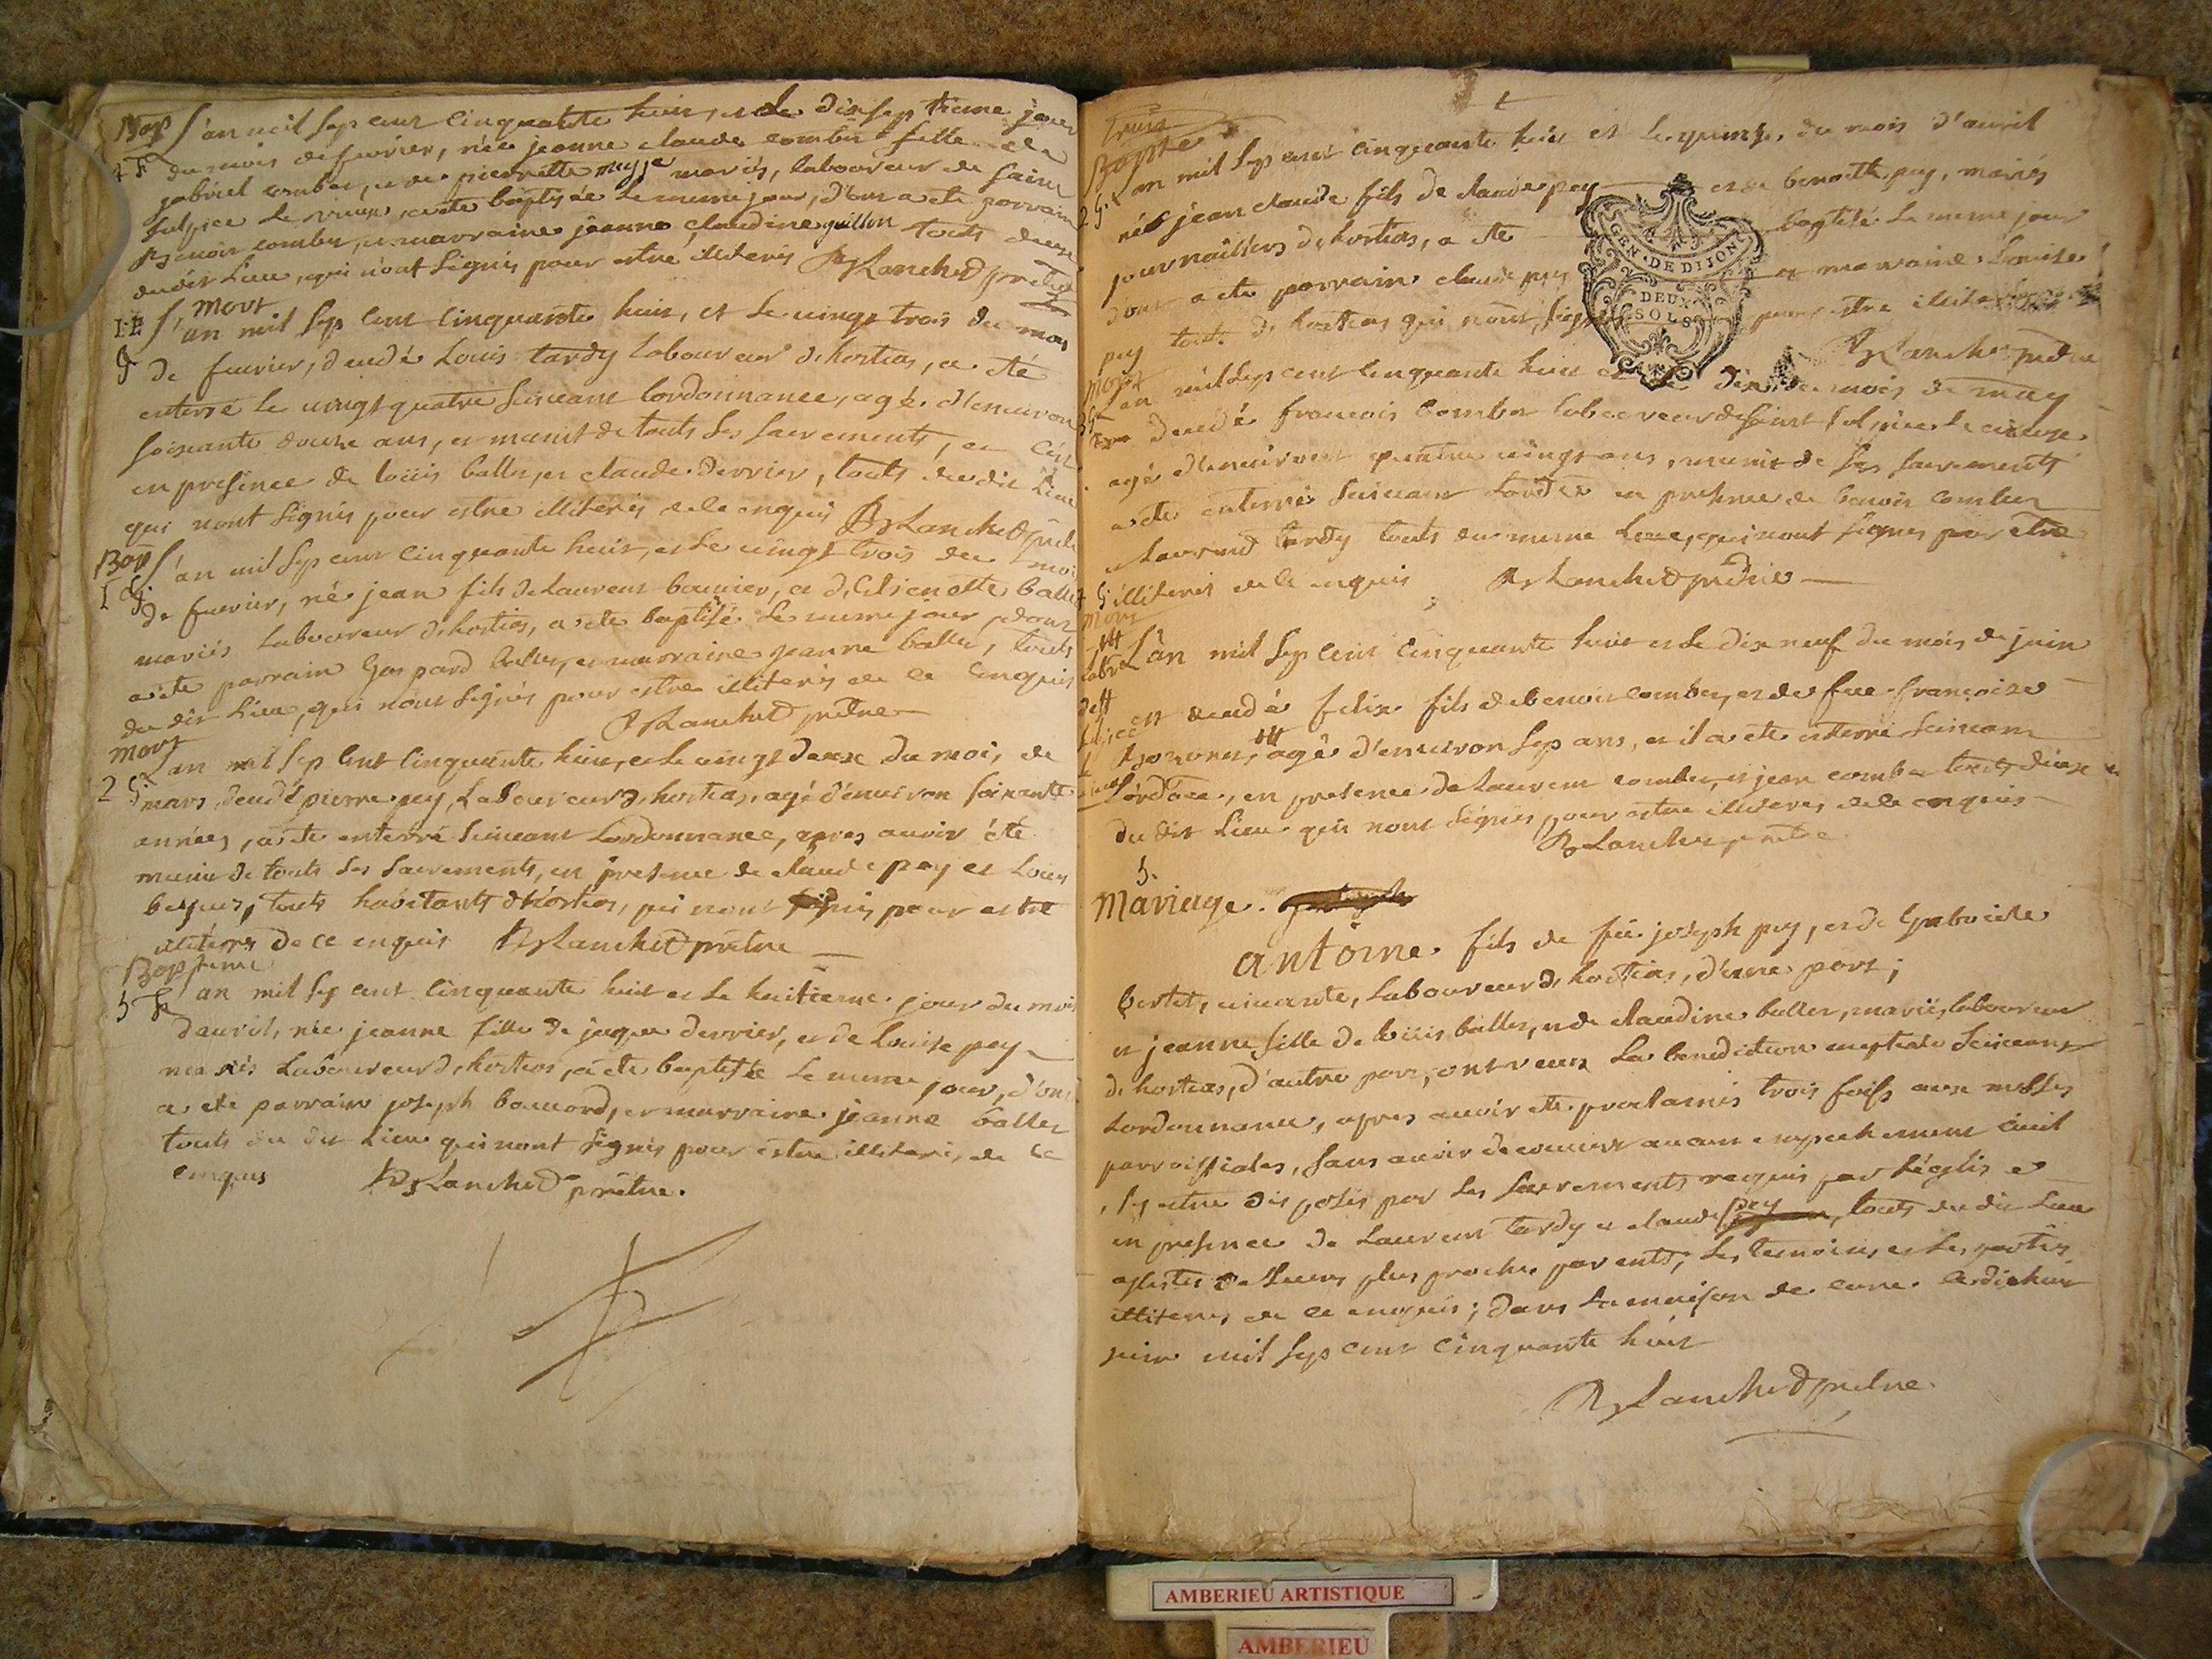 Bap L'an mil sep cent cinquante huit, et le dixsep tieme jour
4 F du mois de fevrier, née jeanne claude comber fille de
gabriel comber, et de pierrette mysse mariés, laboureur de saint
sulpice le vieux, a ete baptisée le meme jour, d'ont a ete parrain
Benoit comber, et marraine jeanne claudine guillon touts deux
dudit lieu, qui n'ont signés pour estre illiteris Blanchet pretre
Mort
1 E L'an mil sep cent cinquante huit, et le vingt trois du mois
G de fevrier, decedé Louis tardy laboureur d'hostias, a eté
enterré le vingt quatre suivant lordonnance, agé d'environ
soixante douze ans, et munit de touts ses sacrements, et c'est
en presence de loüis ballet, et claude derrier, touts du dit lieu
qui nont signés pour estre illiteris de ce enquis Blanchet pretre
Bap L'an mil sep cent cinquante huit, et le vingt trois du moi
1 G de fevrier, né jean fils de Laurent bouvier, et d'Etienette ballet
mariés laboureur d'hostias, a ete baptisé le meme jour, dont
a ete parrain Gaspard ballet, et marraine jeanne ballet, touts
du dit lieu, qui nont signés pour estre illiteris de ce enquis
Blanchet pretre
Mort
L'an mil sep cent cinquante huit, et le vingt deux du moi, de
2 G mars, decedé pierre pey, Laboureur d'hostias, agé d'environ soixante
années, a ete enterré suivant Lordonnance, apres avoir été
munit de touts ses sacrements, en presence de claude pey et Louis
touts habitants d'hostias, qui nont signés pour estre
illiteris de ce enquis Blanchet pretre
Bapteme
5 F L'an mil sep cent cinquante huit et le huitieme jour du mois
d'avril, née jeanne fille de jaque derrier, et de Louise pey
mariés Laboureur d'hostias, a ete baptisée le meme jour, d'ont
a ete parrain joseph bouvard, et marraine jeanne ballet
touts du dit Lieu qui nont signés pour estre illiteris de ce
enquis Blanchet pretre.
Bapte
2 G L'an mil sep cent cinquante huit et le quinze, du mois d'avril
né jean claude fils de claude pey et de benoitte pey, mariés
journailliers d'hostias, a ete baptisé le meme jour
d'ont a ete parrain claude pey et marraine Louise
pey touts d'hostias qui nont signés pour estre illiteris
GEN·DE DIJON
DEUX
SOLS
Blanchet pretre
Mort
L'an mil sep cent cinquante huit et le dix du mois de may
3 G decedé francois Comber laboureur de saint sulpice le vieux
agé d'environ quatre vingt ans, munit de ses sacrements
a ete enterré suivant lordce en presence de benoit comber
et Laurend tardy touts du meme lieu, qui nont signés par etre
4 G illiteris de ce enquis Blanchet pretrie
Mort
L'an mil sep cent cinquante huit et le dix neuf du mois de juin
est decedé felix fils de benoit comber, et de fue francoise
agé d'environ sep ans, et il a ete enterré suivant
lordce, en presence de Laurent comber, et jean comber touts deux
du dit Lieu qui nont signés pour estre illiteres de ce enquis
Blanchet pretre
5.
Mariage.
antoine fils de feu joseph pey, et de
bertet, vivante, laboureur d'hostias, d'une part;
et jeanne fille de loüis ballet, et de claudine ballet, mariés, laboureur
d'hostias, d'autre part, ont receu La benediction nuptiale suivant
Lordonnance, apres avoir ete proclamés trois foiss aux messes
parroissiales, sans avoir decouvert aucun empechement civil
s'y etre disposés par les sacrements requis par l'eglise et
en presence de Laurent tardy et claude pey, touts du dit lieu
assistés de leurs plus proche parents, Les temoins et les partis
illiteres de ce enquis; dans la maison de cure. Le dixhuit
juin mil sep cent cinquante huit
Blanchet pretre.
AMBERIEU ARTISTIQUE
AMBERIEU